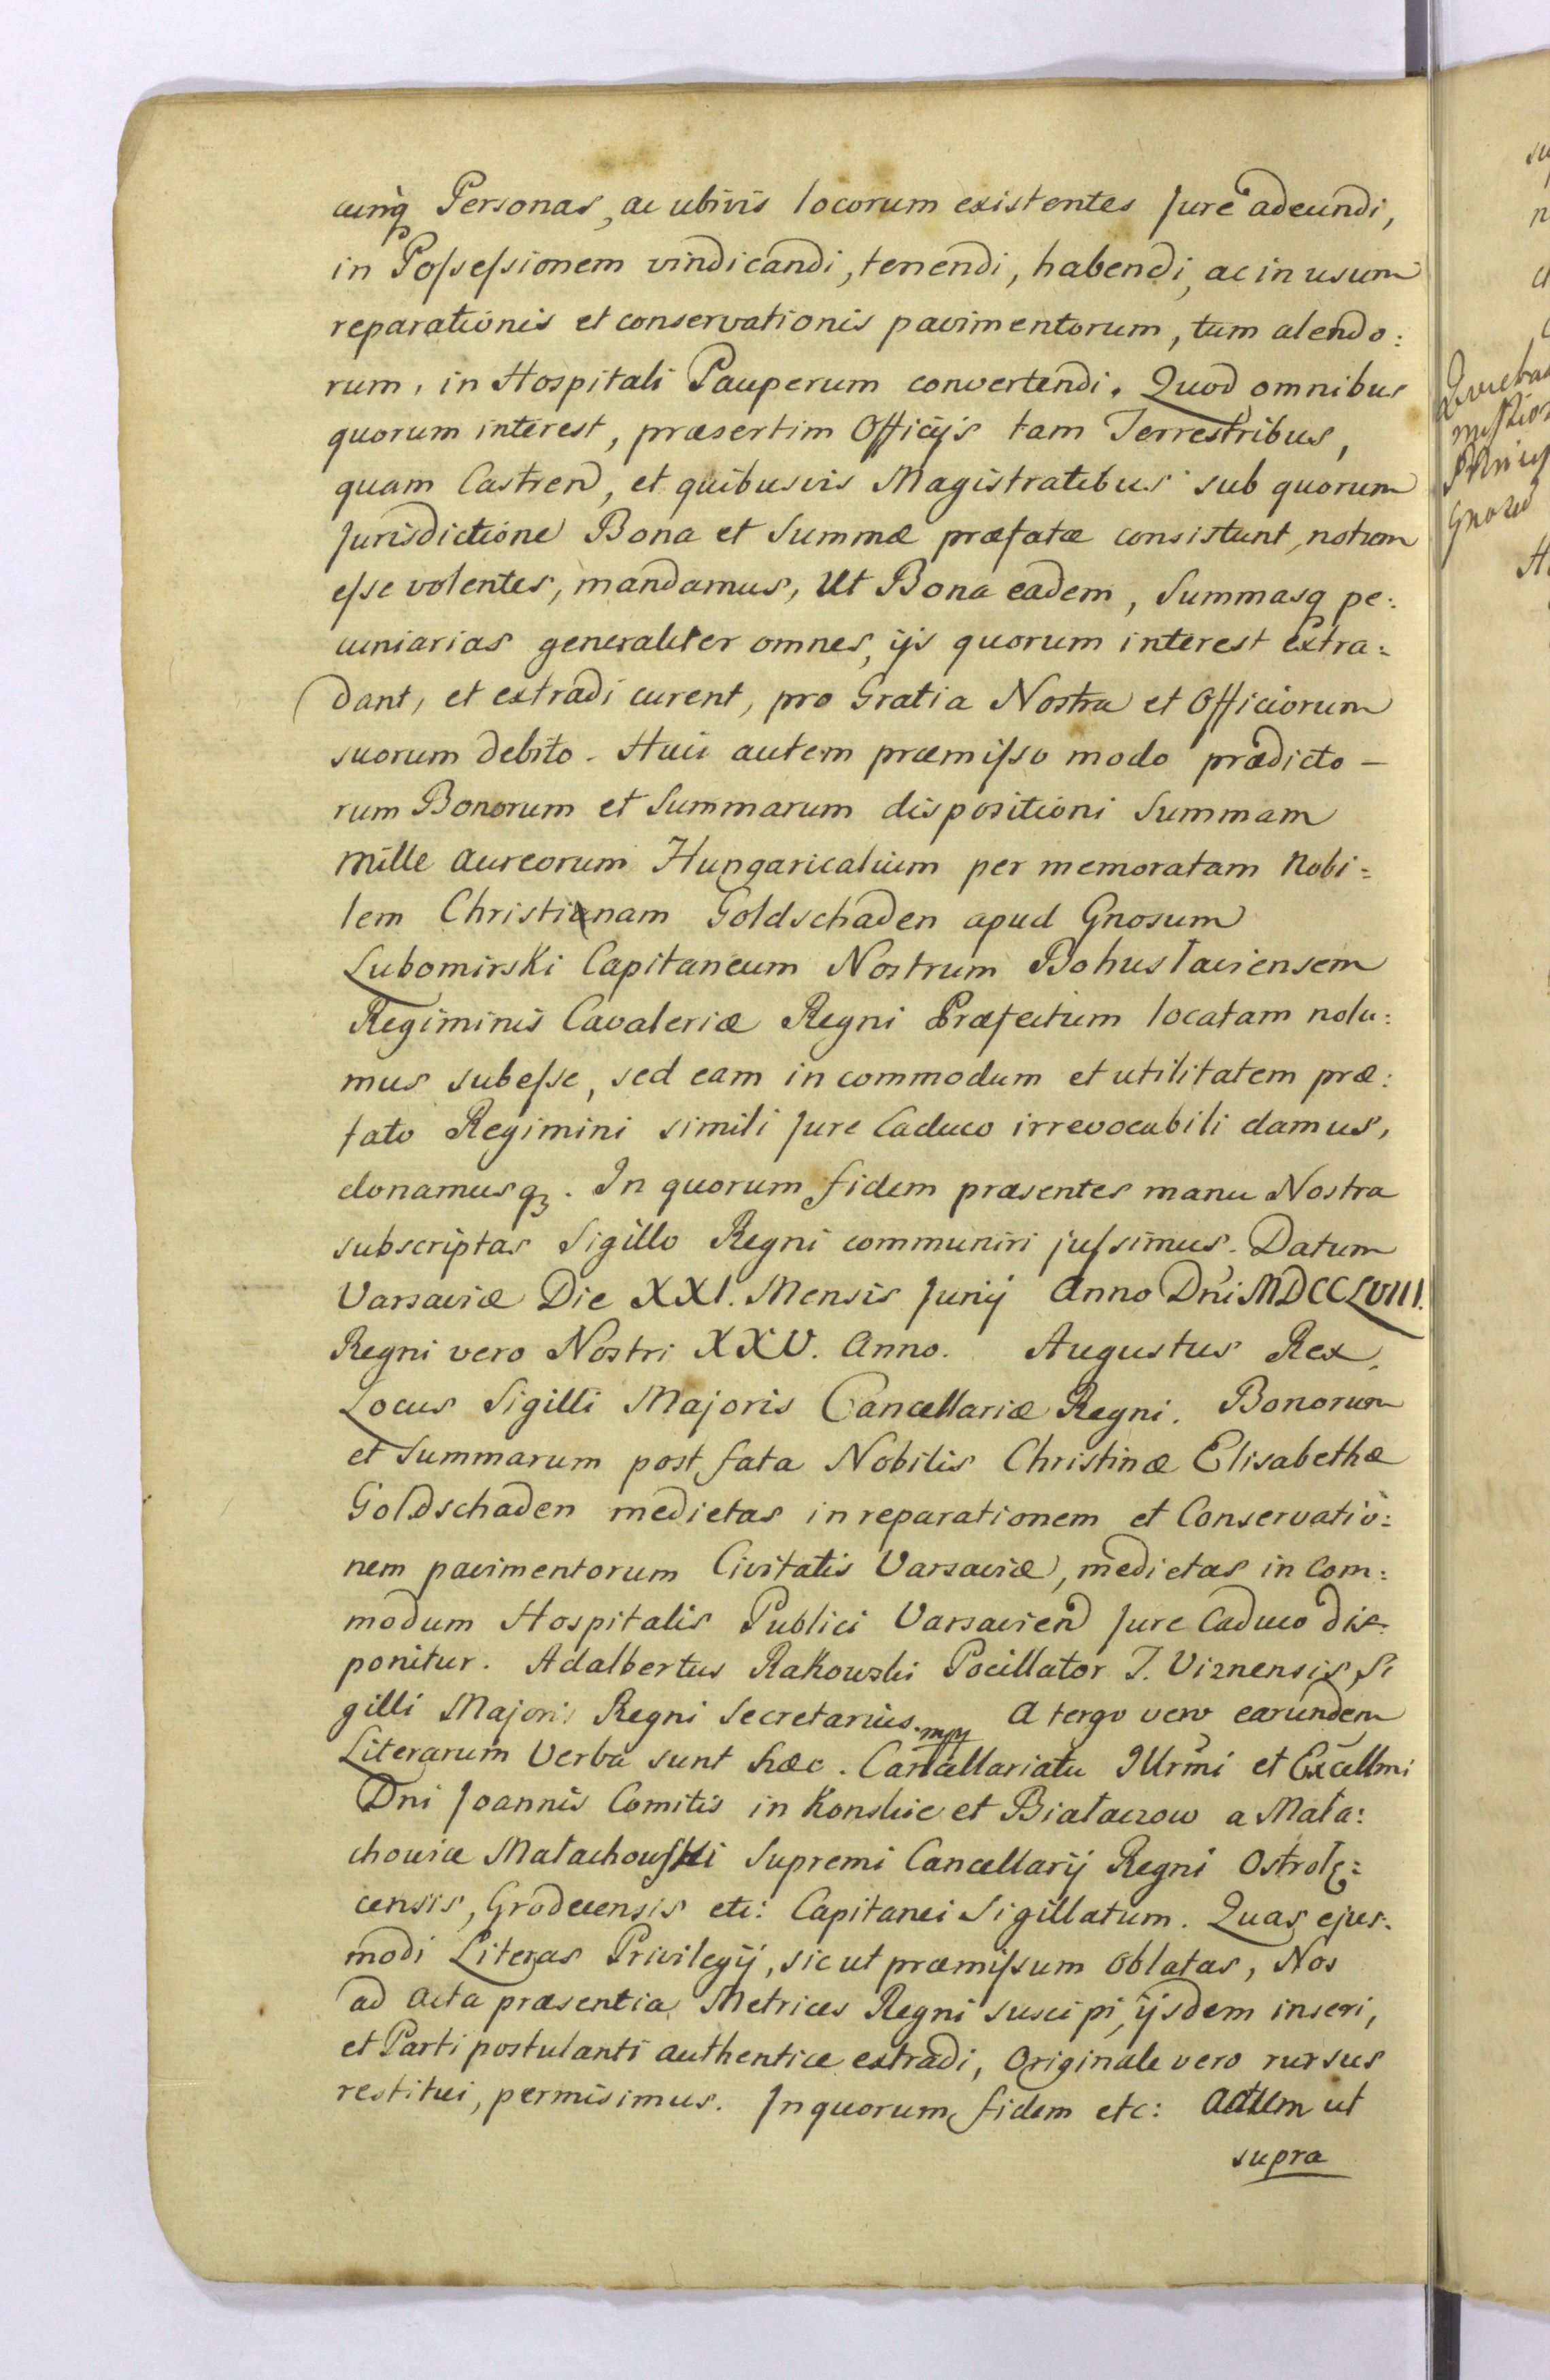 cunq Personas, ac ubivis locorum existentes Jure adeundi,
in Poſseſsionem vindicandi, tenendi, habendi, ac in usum
reparationis et conservationis pavimentorum, tum alendo:
rum, in Hospitali Pauperum convertendi. Quod omnibus
quorum interest, præsertim Officijs tam Terrestribus,
quam Castren, et quibusvis Magistratibus sub quorum
Jurisdictione Bona et Summæ præfatæ consistunt, notum
eſse volentes, mandamus, Ut Bona eadem, Summasq pe:
cuniarias generaliter omnes, ijs quorum interest extra:
dant, et extradi curent, pro Gratia Nostra et Officiorum
suorum debito. Huic autem præmiſso modo prædicto –
rum Bonorum et Summarum dispositioni Summam
Mille aureorum Hungaricalium per memoratam Nobi:
lem Christianam Goldschaden apud Gnosum
Lubomirski Capitaneum Nostrum Bohuslaviensem
Regiminis Cavaleriæ Regni Præfectum locatam nolu:
mus subeſse, sed eam in commodum et utilitatem præ:
fato Regimini simili Jure Caduco irrevocabili damus,
donamusq. In quorum fidem præsentes manu Nostra
subscriptas Sigillo Regni communiri juſsimus. Datum
Varsaviæ Die XXI. Mensis Junij Anno Dni MDCCLVIII.
Regni vero Nostri XXV. Anno. Augustus Rex.
Locus Sigilli Majoris Cancellariæ Regni. Bonorum
et Summarum post fata Nobilis Christinæ Elisabethæ
Goldschaden medietas in reparationem et Conservatio:
nem pavimentorum Civitatis Varsaviæ, medietas in Com:
modum Hospitalis Publici Varsavien Jure Caduco dis:
ponitur. Adalbertus Rakowski Pocillator T. Viznensis, Si
gilli Majoris Regni Secretarius. mpp A tergo vero earundem
Literarum Verba sunt hæc. Cancellariatu Illrmi et Excellmi
Dni Joannis Comitis in Konskie et Białaczow a Mała:
chowice Małachowſki Supremi Cancellarij Regni Ostrołę:
censis, Grodecensis etc: Capitanei Sigillatum. Quas ejus:
modi Literas Privilegij, sic ut præmiſsum oblatas, Nos
ad Acta præsentia Metrices Regni suscipi, ijsdem inseri,
et Parti postulanti authentice extradi, Originale vero rursus
restitui, permisimus. In quorum fidem etc: Actum ut
supra